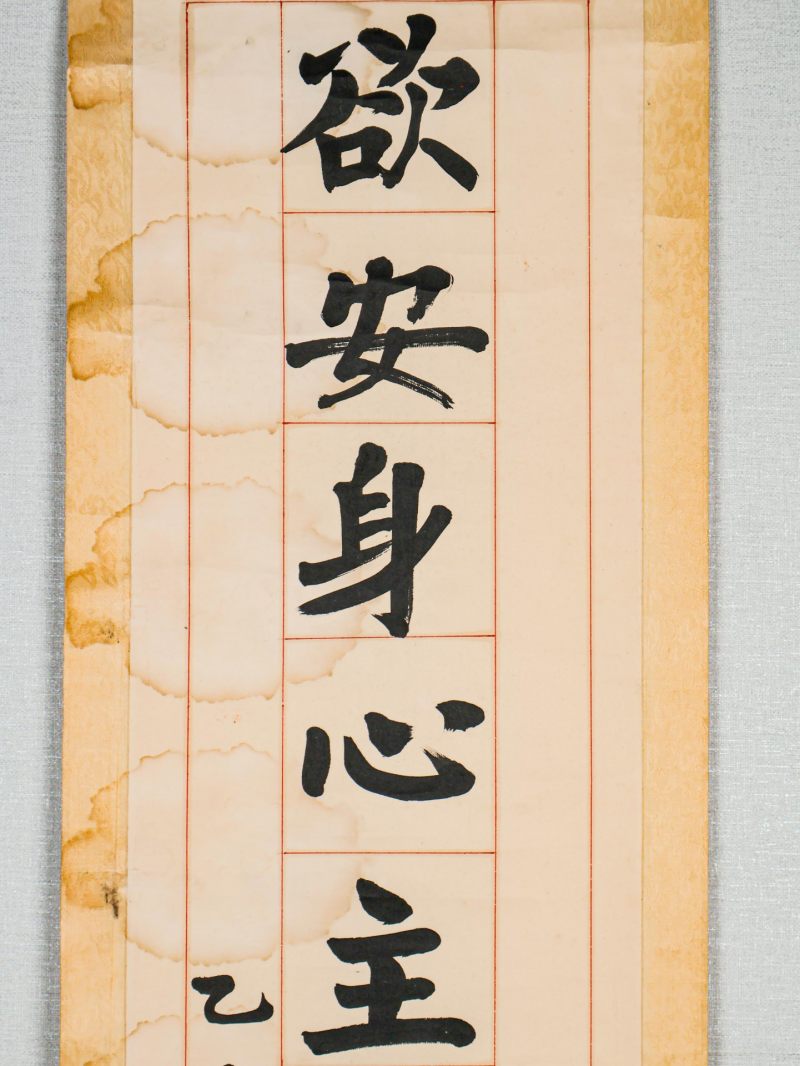 欲安身心主
乙